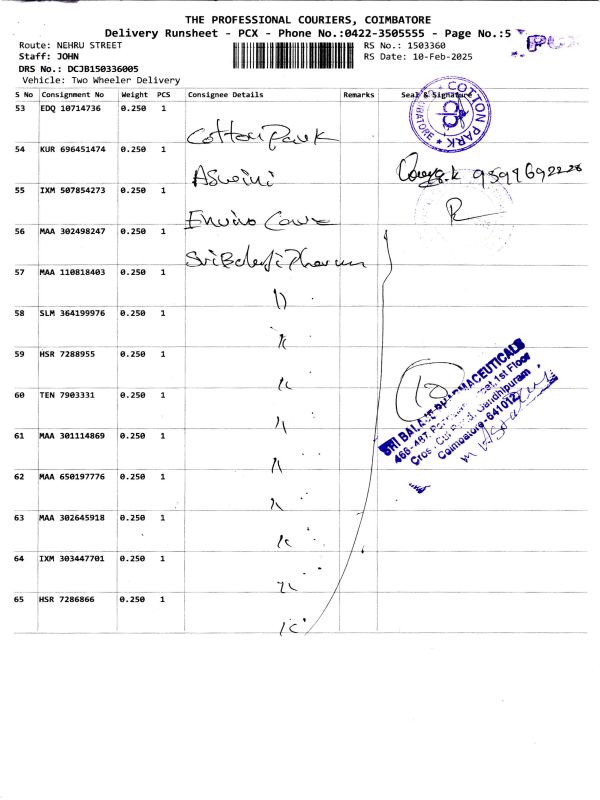 THE PROFESSIONAL COURIERS, COIMBATORE
Delivery Runsheet - PCX - Phone No.:0422-3505555 - Page No.:5
Route: NEHRU STREET RS No.: 1503360
Staff: JOHN RS Date: 10-Feb-2025
DRS No.: DCJB150336005
Vehicle: Two Wheeler Delivery
S No Consignment No Weight PCS Consignee Details Remarks Seal & Signature
53 EDQ 10714736 0.250 1 Cotton Park
COTTON PARK
COIMBATORE
54 KUR 696451474 0.250 1 Aswini
55 IXM 507854273 0.250 1 Enviro Care
56 MAA 302498247 0.250 1 Sri Balaji Pharma
57 MAA 110818403 0.250 1 "
58 SLM 364199976 0.250 1 "
59 HSR 7288955 0.250 1 "
60 TEN 7903331 0.250 1 "
61 MAA 301114869 0.250 1 "
62 MAA 650197776 0.250 1 "
63 MAA 302645918 0.250 1 "
64 IXM 303447701 0.250 1 "
65 HSR 7286866 0.250 1 "
10
SRI BALAJI PHARMACEUTICALS
466-467, 1st Floor
Cross Cut Road, Gandhipuram
Coimbatore-641012